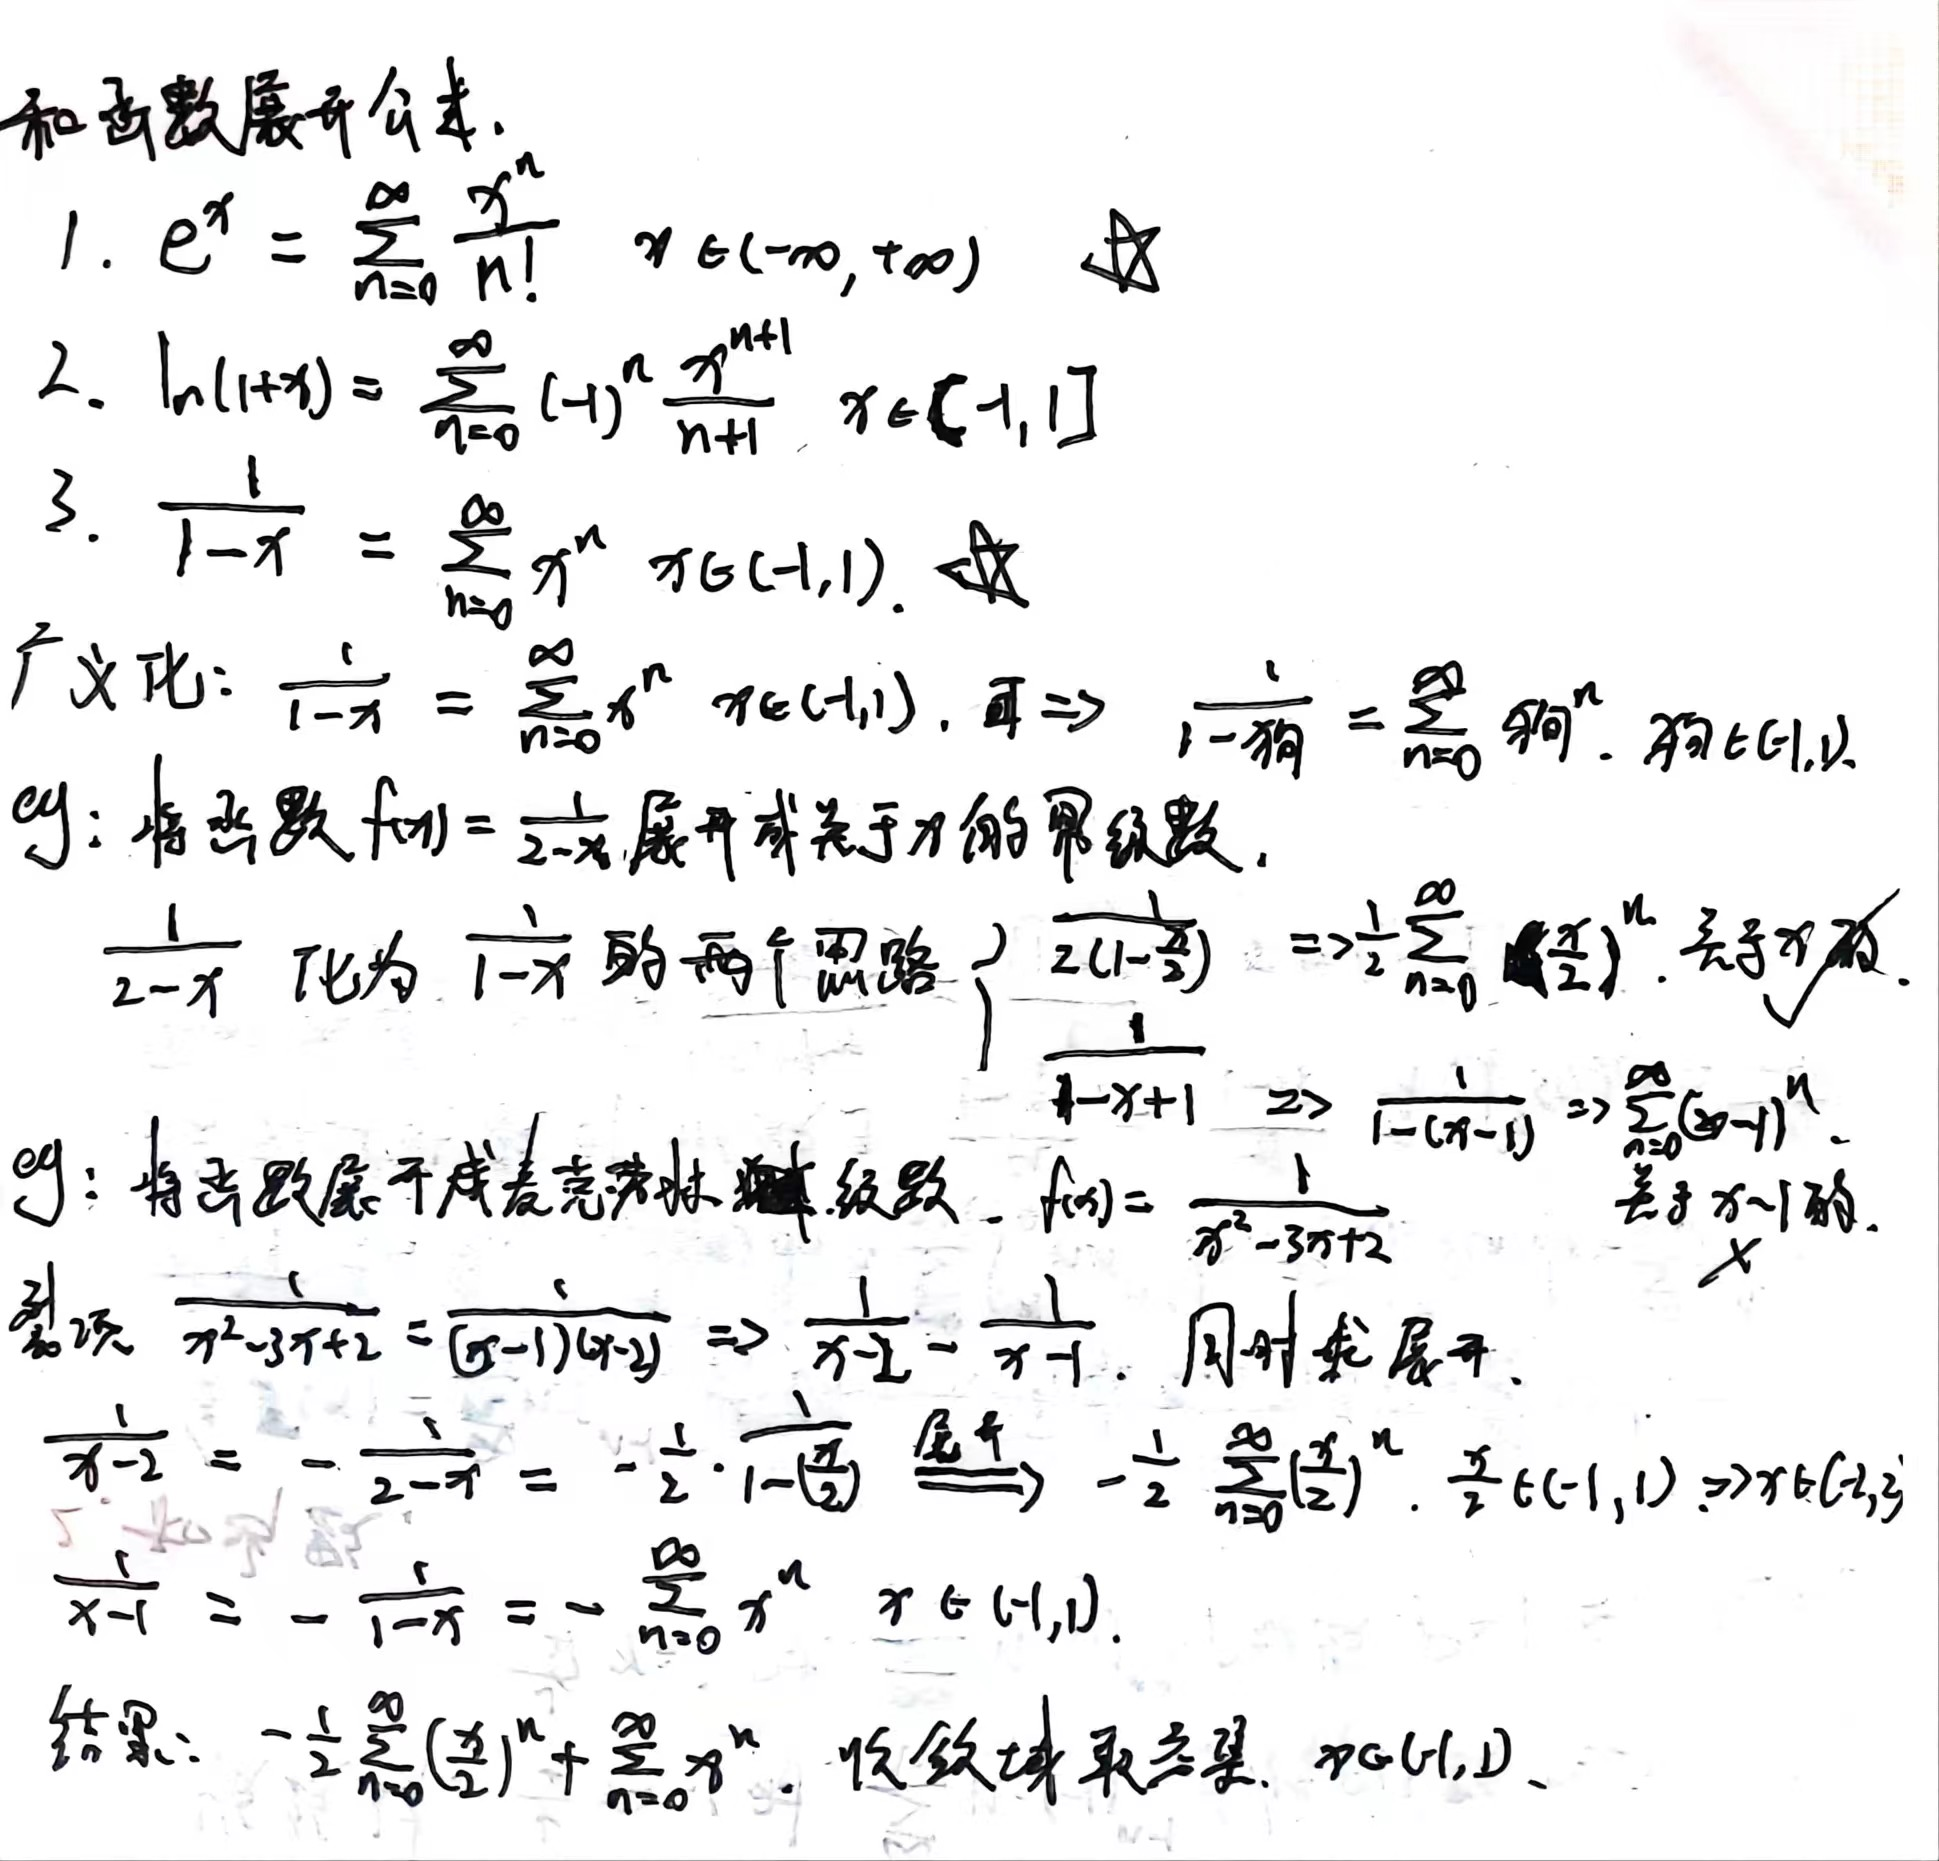 和函数展开公式.
1. e^x = ∑_{n=0}^{∞} x^n/n! x∈(-∞, +∞) ☆
2. ln(1+x) = ∑_{n=0}^{∞} (-1)^n x^{n+1}/(n+1) x∈(-1,1]
3. 1/(1-x) = ∑_{n=0}^{∞} x^n x∈(-1,1). ☆
广义化: 1/(1-x) = ∑_{n=0}^{∞} x^n x∈(-1,1). 可 => 1/(1-狗) = ∑_{n=0}^{∞} 狗^n. 狗∈(-1,1).
eg: 将函数 f(x) = 1/(2-x) 展开成关于x的幂级数.
1/(2-x) 化为 1/(1-x) 的两个思路 { 1/(2(1-x/2)) => 1/2 ∑_{n=0}^{∞} (x/2)^n. 关于x的. ✓
1/(1-x+1) => 1/(1-(x-1)) => ∑_{n=0}^{∞} (x-1)^n.
关于x-1的. ×
eg: 将函数展开成麦克劳林级数. f(x) = 1/(x²-3x+2)
裂项 1/(x²-3x+2) = 1/((x-1)(x-2)) => 1/(x-2) - 1/(x-1). 同时求展开.
1/(x-2) = - 1/(2-x) = -1/2 · 1/(1-(x/2)) 展开⟹ -1/2 ∑_{n=0}^{∞} (x/2)^n. x/2∈(-1,1) => x∈(-2,2)
1/(x-1) = - 1/(1-x) = - ∑_{n=0}^{∞} x^n x∈(-1,1).
结果: -1/2 ∑_{n=0}^{∞} (x/2)^n + ∑_{n=0}^{∞} x^n. 收敛域取交集. x∈(-1,1).